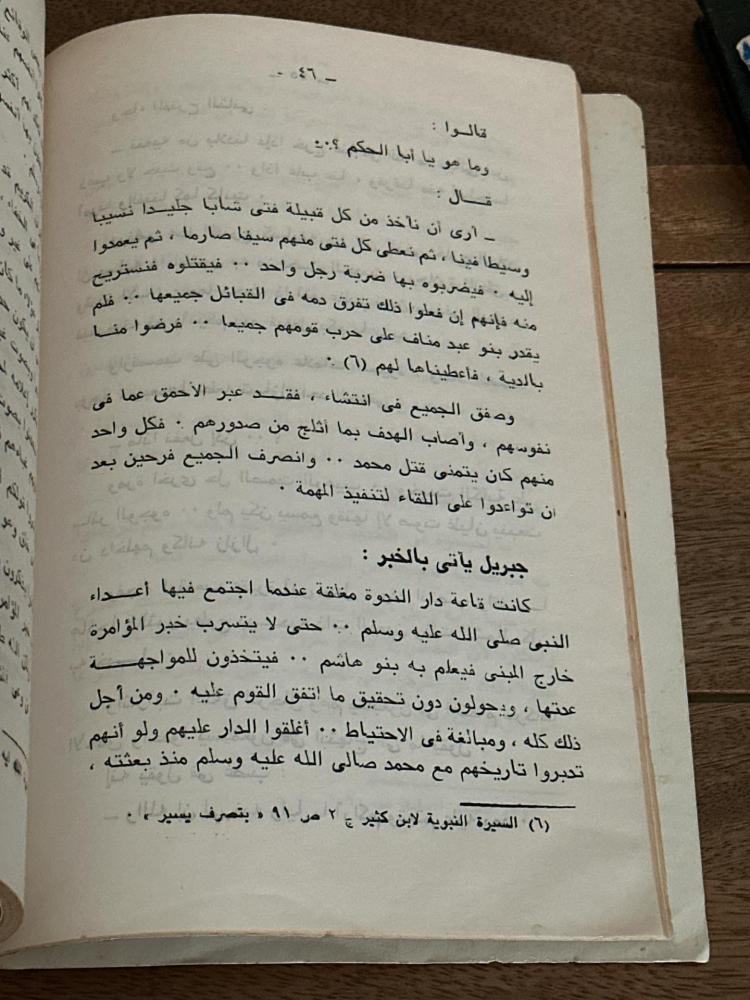 ـ ٤٦ ـ
قالــوا :
وما هو يا أبا الحكم ؟٠٠
قــــال :
ـ أرى أن نأخذ من كل قبيلة فتى شابا جليــدا نسيبا
وسيطا فينا ، ثم نعطى كل فتى منهم سيفا صارما ، ثم يعمدوا
إليه ٠ فيضربوه بها ضربة رجل واحد ٠٠ فيقتلوه فنستريح
منه فإنهم إن فعلوا ذلك تفرق دمه فى القبائل جميعها ٠٠ فلم
يقدر بنو عبد مناف على حرب قومهم جميعا ٠٠ فرضوا منــا
بالدية ، فأعطيناها لهم (٦) ٠
وصفق الجميع فى انتشاء ، فقــــد عبر الأحمق عما فى
نفوسهم ، وأصاب الهدف بما أثلج من صدورهم ٠ فكل واحد
منهم كان يتمنى قتل محمد ٠٠ وانصرف الجميع فرحين بعد
أن تواعدوا على اللقاء لتنفيذ المهمة ٠
جبريل يأتى بالخبر :
كانت قاعة دار الندوة مغلقة عندما اجتمع فيها أعــــداء
النبى صلى الله عليه وسلم ٠٠ حتى لا يتسرب خبر المؤامرة
خارج المبنى فيعلم به بنو هاشم ٠٠ فيتخذون للمواجهــــة
عدتها ، ويحولون دون تحقيق ما اتفق القوم عليه ٠ ومن أجل
ذلك كله ، ومبالغة فى الاحتياط ٠٠ أغلقوا الدار عليهم ولو أنهم
تدبروا تاريخهم مع محمد صالى الله عليه وسلم منذ بعثته ،
(٦) السيرة النبوية لابن كثير ج ٢ ص ٩١ « بتصرف يسير » ٠